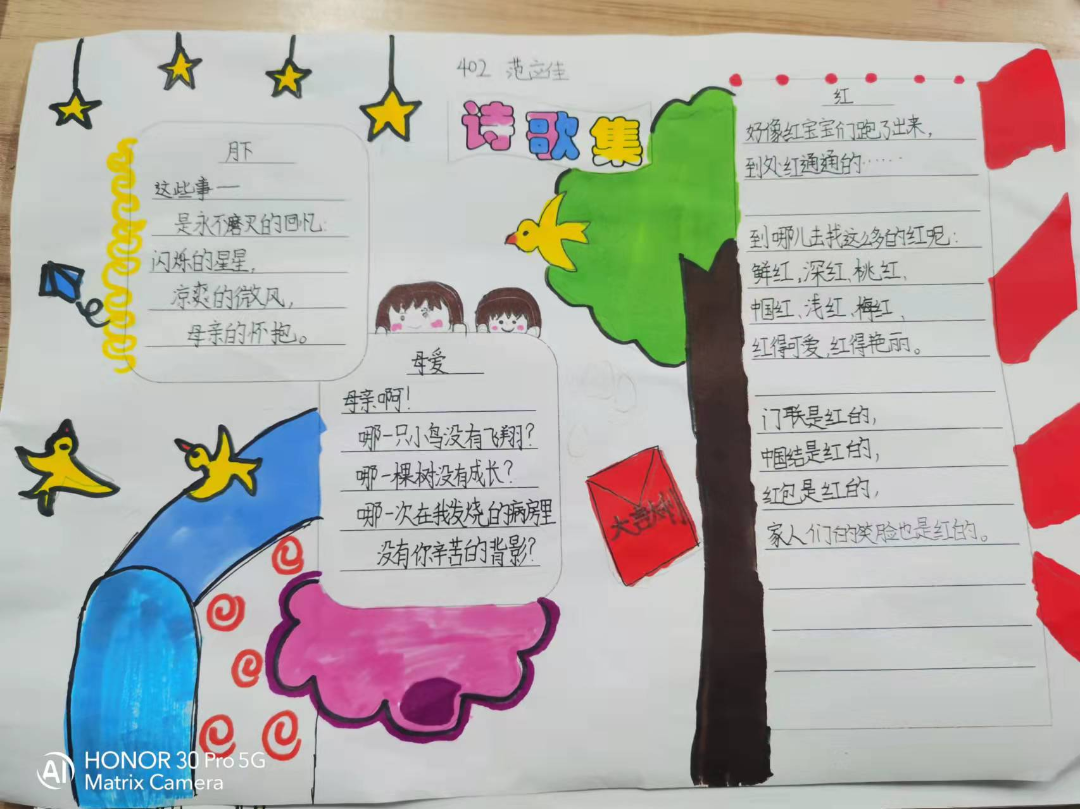 402 范立佳
诗歌集
月下
这些事——
是永不磨灭的回忆:
闪烁的星星,
凉爽的微风,
母亲的怀抱。
母爱
母亲啊!
哪一只小鸟没有飞翔?
哪一棵树没有成长?
哪一次在我发烧的病房里
没有你辛苦的背影?
大吉大利
红
好像红宝宝们跑了出来,
到处红通通的……
到哪儿去找这么多的红呢:
鲜红,深红、桃红、
中国红、浅红、梅红、
红得可爱,红得艳丽。
门联是红的,
中国结是红的,
红包是红的,
家人们的笑脸也是红的。
AI HONOR 30 Pro 5G
Matrix Camera